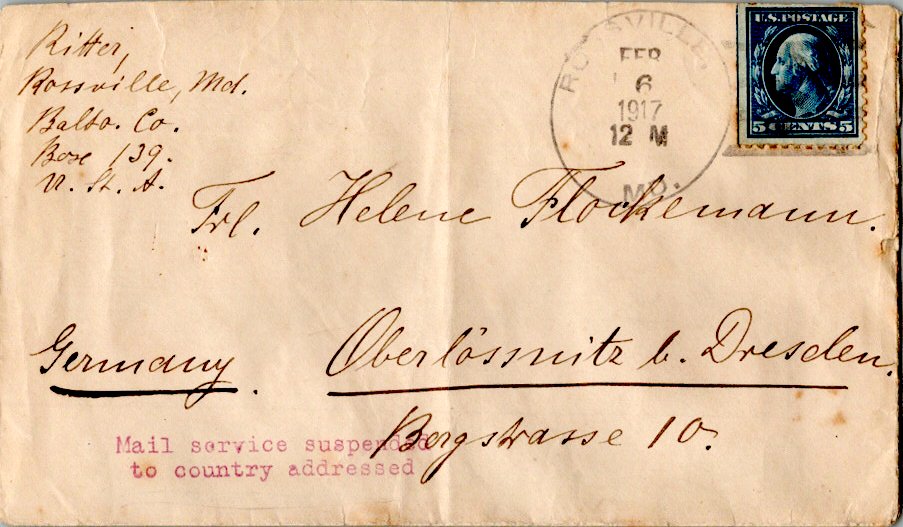 Ritter,
Rossville, Md.
Balto. Co.
Box 139.
U. St. A.
ROSSVILLE,
FEB
6
1917
12 M
MD.
U.S. POSTAGE
5 CENTS 5
Frl. Helene Flockemann.
Germany. Oberlössnitz b. Dresden.
Bergstrasse 10.
Mail service suspended
to country addressed